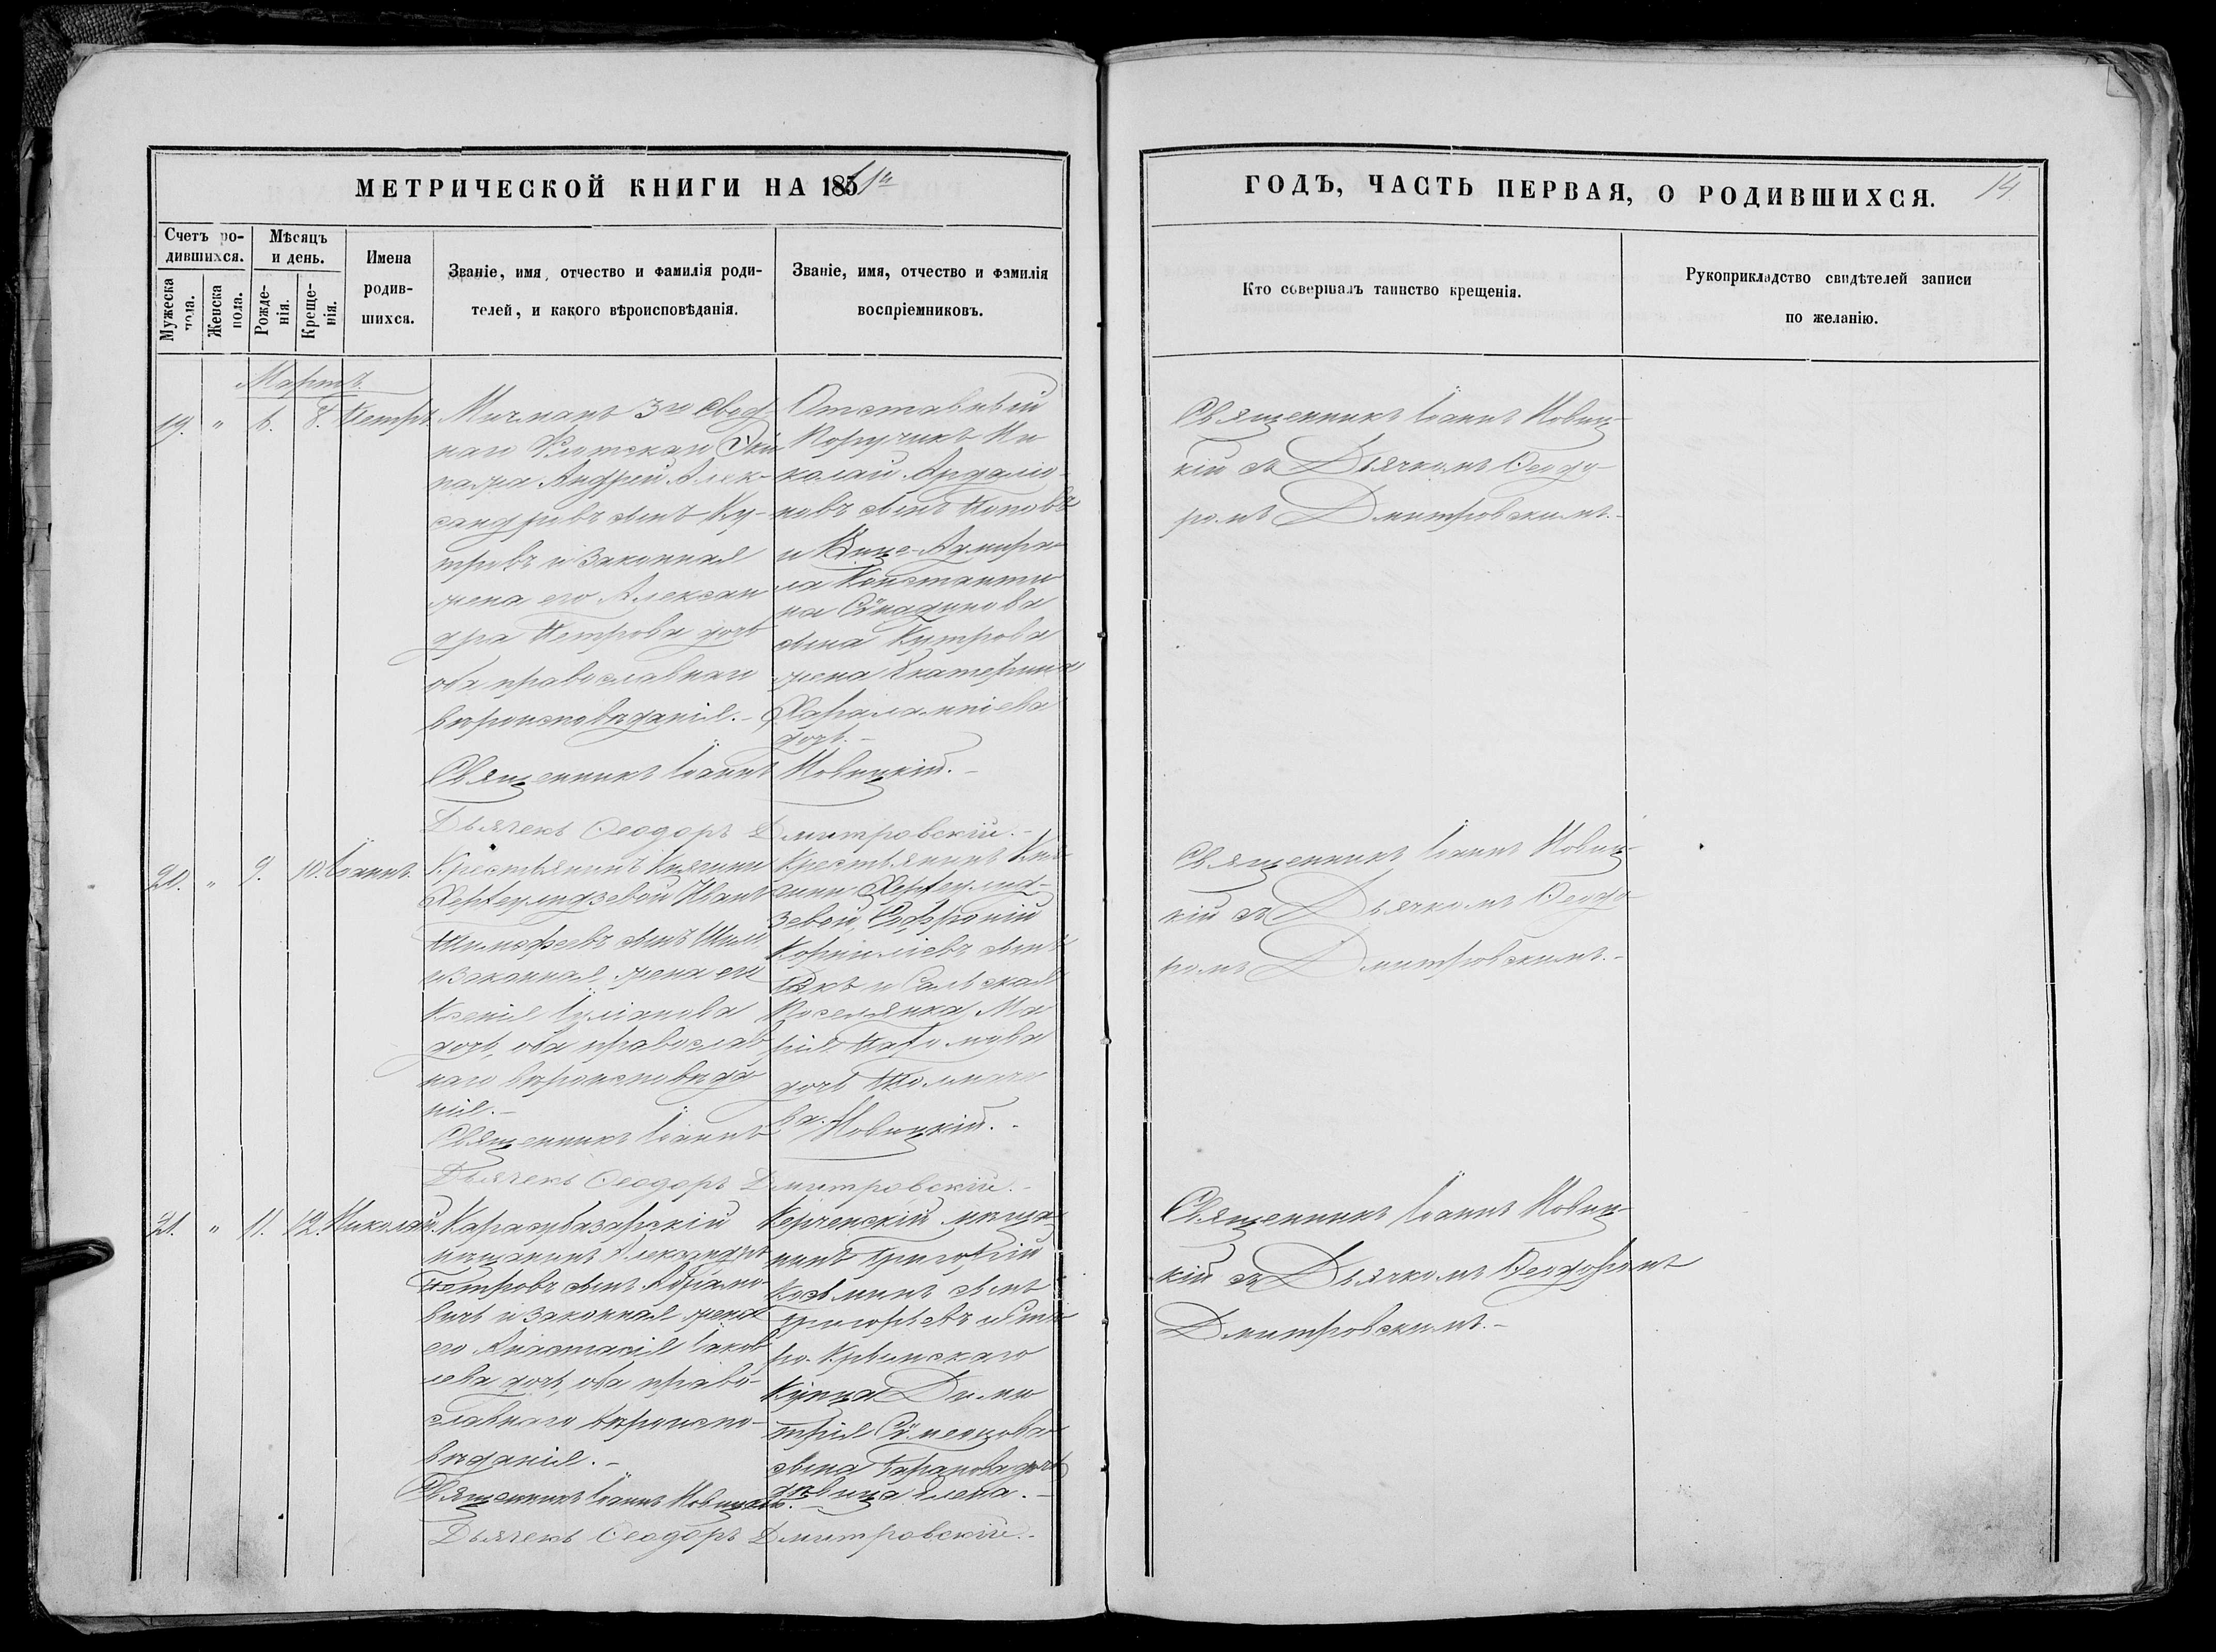 МЕТРИЧЕСКОЙ КНИГИ НА 1861й
Счетъ ро-
дившихся.
Мужеска
пола.
Женска
пола.
Мѣсяцъ
и день.
Рожде-
нія.
Креще-
нія.
Имена
родив-
шихся.
Званіе, имя, отчество и фамилія роди-
телей, и какого вѣроисповѣданія.
Званіе, имя, отчество и фамилія
воспріемниковъ.
Мартъ.
19. " 6. 8. Петръ.
Мичманъ 3го Свод-
наго Флотскаго Эки
пажа Андрей Алек-
сандровъ сынъ Ку-
тровъ и законная
жена его Алексан
дра Петрова дочь
оба православнаго
вѣроисповѣданія.-
Отставный
Поручикъ Ни
колай Ардаліо-
новъ сынъ Поповъ
и Вице-Адмира-
ла Константи
на Спиадинова
сына Кутрова
жена Екатерина
Харалампіева
дочь.-
Священникъ Іоаннъ Новицкій.-
Дьячекъ Ѳеодоръ Дмитровскій.-
20. " 9. 10. Іоаннъ.
Крестьянинъ Княгини
Херхеулидзевой Иванъ
Тимофеевъ сынъ
и законная жена его
Ксенія Іуліанова
дочь, оба православ
наго вѣроисповѣда
нія.-
Крестьянинъ Кня-
гини Херхеулид-
зевой, Софроній
Корниліевъ сынъ
и Сальская
Поселянка Ма
рія Пахомова
дочь Толмаче
ва.-
Священникъ Іоаннъ Новицкій.-
Дьячекъ Ѳеодоръ Дмитровскій.-
21. " 11. 12. Николай.
Карасубазарскій
мѣщанинъ Александръ
Петровъ сынъ
и законная жена
его Анастасія Іаков
лева дочь, оба право-
славнаго вѣроиспо-
вѣданія.-
Керченскій мѣща-
нинъ Григорій
Козьминъ сынъ
Григорьевъ и Ста
ро-Крымскаго
Купца Дими
трія Симеонова
сына Баранова дочь
дѣвица Елена.-
Священникъ Іоаннъ Новицкій.
Дьячекъ Ѳеодоръ Дмитровскій.-
ГОДЪ, ЧАСТЬ ПЕРВАЯ, О РОДИВШИХСЯ. 14
Кто совершалъ таинство крещенія.
Рукоприкладство свидѣтелей записи
по желанію.
Священникъ Іоаннъ Новиц-
кій съ Дьячкомъ Ѳеодо-
ромъ Дмитровскимъ.-
Священникъ Іоаннъ Новиц-
кій съ Дьячкомъ Ѳеодо-
ромъ Дмитровскимъ.-
Священникъ Іоаннъ Новиц-
кій съ Дьячкомъ Ѳеодоромъ
Дмитровскимъ.-